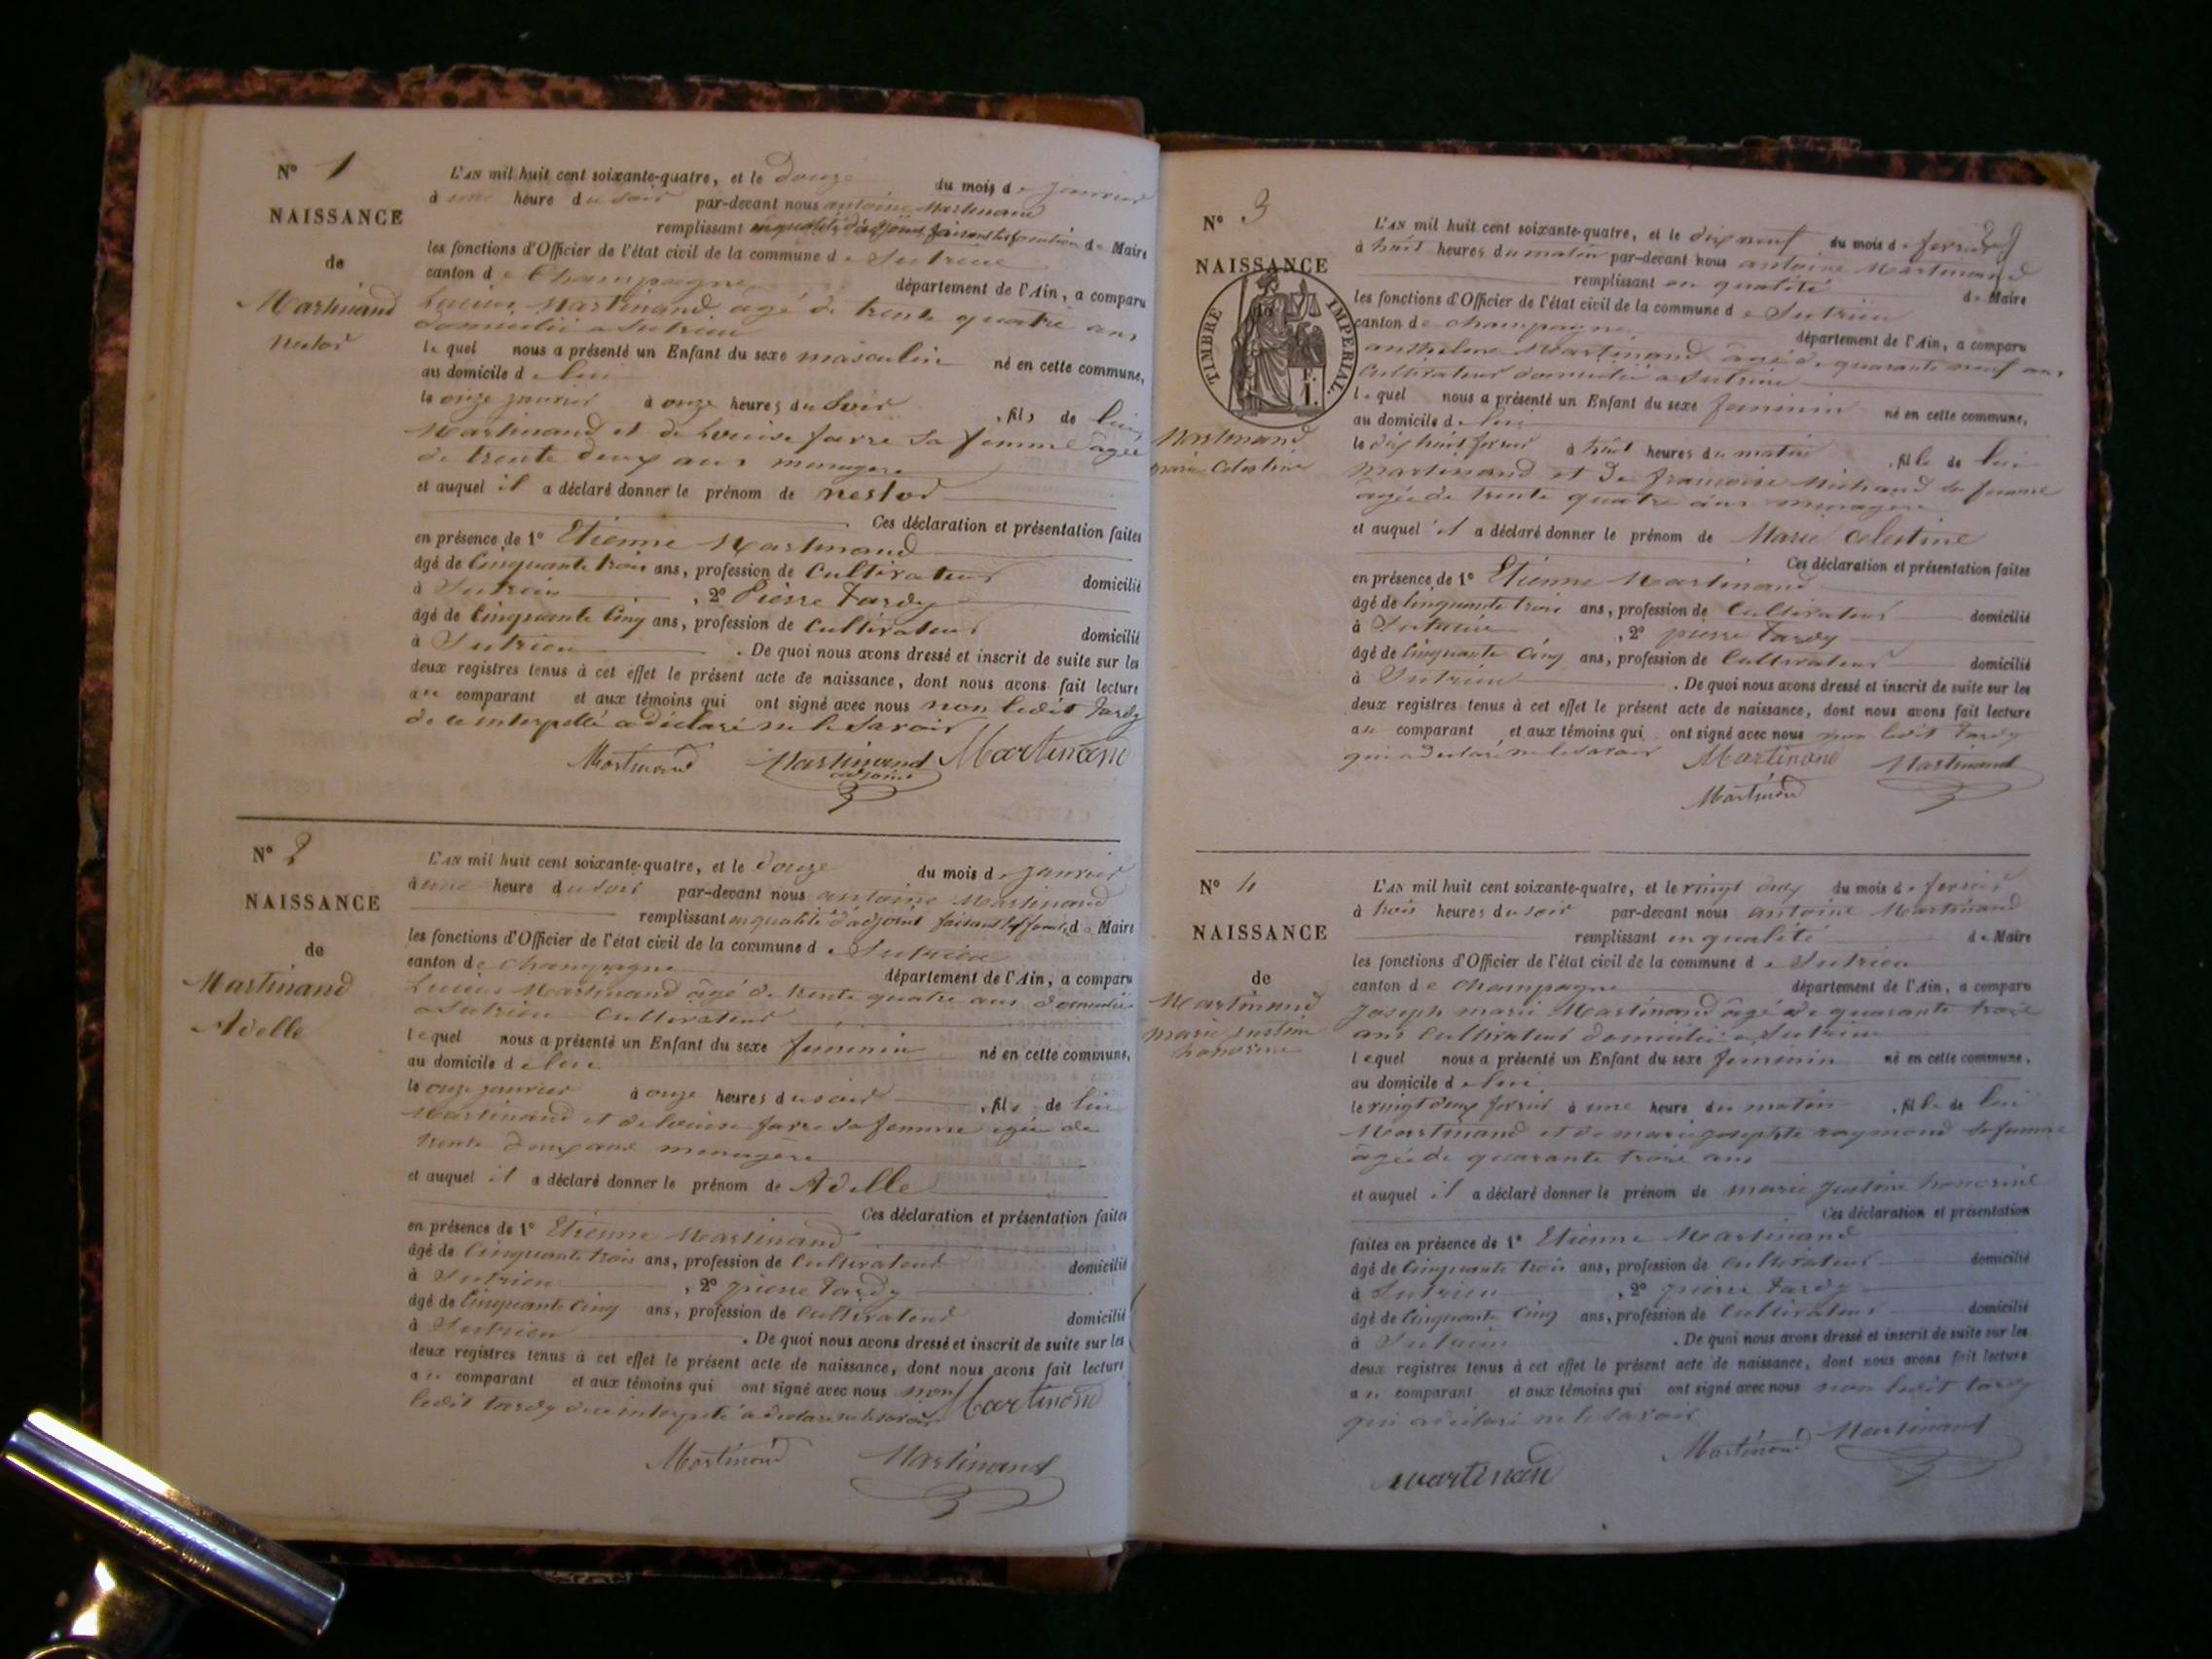 N° 1
NAISSANCE
de
Martinand
nestor
L'AN mil huit cent soixante-quatre, et le douze du mois de janvier
à une heure du soir par-devant nous antoine Martinand
remplissant en qualité d'adjoint faisant les fonctions de Maire
les fonctions d'Officier de l'état civil de la commune de Sutrieu
canton de Champagne département de l'Ain, a comparu
Lucien Martinand agé de trente quatre ans
domicilié a Sutrieu
lequel nous a présenté un Enfant du sexe masculin né en cette commune,
au domicile de lui
le onze janvier à onze heures du Soir, fils de lui
Martinand et de Louise farre sa femme agée
de trente deux ans menagere
et auquel il a déclaré donner le prénom de nestor
Ces déclaration et présentation faites
en présence de 1° Etienne Martinand
âgé de Cinquante trois ans, profession de Cultivateur domicilié
à Sutrieu, 2° Pierre Tardy
âgé de Cinquante Cinq ans, profession de Cultivateur domicilié
à Sutrieu. De quoi nous avons dressé et inscrit de suite sur les
deux registres tenus à cet effet le présent acte de naissance, dont nous avons fait lecture
au comparant et aux témoins qui ont signé avec nous non ledit Tardy
de ce interpellé a déclaré ne le savoir
Martinand Martinand Martinand
adjoint
N° 2
NAISSANCE
de
Martinand
Adelle
L'AN mil huit cent soixante-quatre, et le douze du mois de janvier
à une heure du soir par-devant nous antoine Martinand
remplissant en qualité d'adjoint faisant les fonct. de Maire
les fonctions d'Officier de l'état civil de la commune de Sutrieu
canton de Champagne département de l'Ain, a comparu
Lucien Martinand âgé de trente quatre ans domicilié
a Sutrieu Cultivateur
lequel nous a présenté un Enfant du sexe feminin né en cette commune,
au domicile de lui
le onze janvier à onze heures du soir, fils de lui
Martinand et de Louise farre sa femme agée de
trente deux ans menagère
et auquel il a déclaré donner le prénom de Adelle
Ces déclaration et présentation faites
en présence de 1° Etienne Martinand
âgé de Cinquante trois ans, profession de Cultivateur domicilié
à Sutrieu, 2° pierre Tardy
âgé de Cinquante Cinq ans, profession de Cultivateur domicilié
à Sutrieu. De quoi nous avons dressé et inscrit de suite sur les
deux registres tenus à cet effet le présent acte de naissance, dont nous avons fait lecture
au comparant et aux témoins qui ont signé avec nous non
ledit tardy de ce interpellé a déclaré ne le savoir Martinand
Martinand Martinand
N° 3
NAISSANCE
TIMBRE IMPÉRIAL
Martinand
marie Celestine
L'AN mil huit cent soixante-quatre, et le dix neuf du mois de fevrier
à huit heures du matin par-devant nous antoine Martinand
remplissant en qualité de Maire
les fonctions d'Officier de l'état civil de la commune de Sutrieu
canton de champagne département de l'Ain, a comparu
anthelme Martinand âgé de quarante neuf ans
Cultivateur domicilié a Sutrieu
lequel nous a présenté un Enfant du sexe feminin né en cette commune,
au domicile de lui
le dix huit fevrier à huit heures du matin, fille de lui
Martinand et de francoise Michaud sa femme
âgée de trente quatre ans menagere
et auquel il a déclaré donner le prénom de Marie Celestine
Ces déclaration et présentation faites
en présence de 1° Etienne Martinand
âgé de Cinquante trois ans, profession de Cultivateur domicilié
à Sutrieu, 2° pierre Tardy
âgé de Cinquante Cinq ans, profession de Cultivateur domicilié
à Sutrieu. De quoi nous avons dressé et inscrit de suite sur les
deux registres tenus à cet effet le présent acte de naissance, dont nous avons fait lecture
au comparant et aux témoins qui ont signé avec nous non ledit Tardy
qui a déclaré ne le savoir Martinand Martinand
Martinand
N° 4
NAISSANCE
de
Martinand
marie justine
honorine
L'AN mil huit cent soixante-quatre, et le vingt deux du mois de fevrier
à trois heures du soir par-devant nous antoine Martinand
remplissant en qualité de Maire
les fonctions d'Officier de l'état civil de la commune de Sutrieu
canton de Champagne département de l'Ain, a comparu
Joseph marie Martinand âgé de quarante trois
ans Cultivateur domicilié a Sutrieu
lequel nous a présenté un Enfant du sexe feminin né en cette commune,
au domicile de lui
le vingt deux fevrier à une heure du matin, fille de lui
Martinand et de marie josephte raymond sa femme
âgée de quarante trois ans
et auquel il a déclaré donner le prénom de marie justine honorine
Ces déclaration et présentation
faites en présence de 1° Etienne Martinand
âgé de Cinquante trois ans, profession de Cultivateur domicilié
à Sutrieu, 2° pierre Tardy
âgé de Cinquante Cinq ans, profession de Cultivateur domicilié
à Sutrieu. De quoi nous avons dressé et inscrit de suite sur les
deux registres tenus à cet effet le présent acte de naissance, dont nous avons fait lecture
au comparant et aux témoins qui ont signé avec nous non ledit tardy
qui a déclaré ne le savoir
Martinand Martinand
Martinand